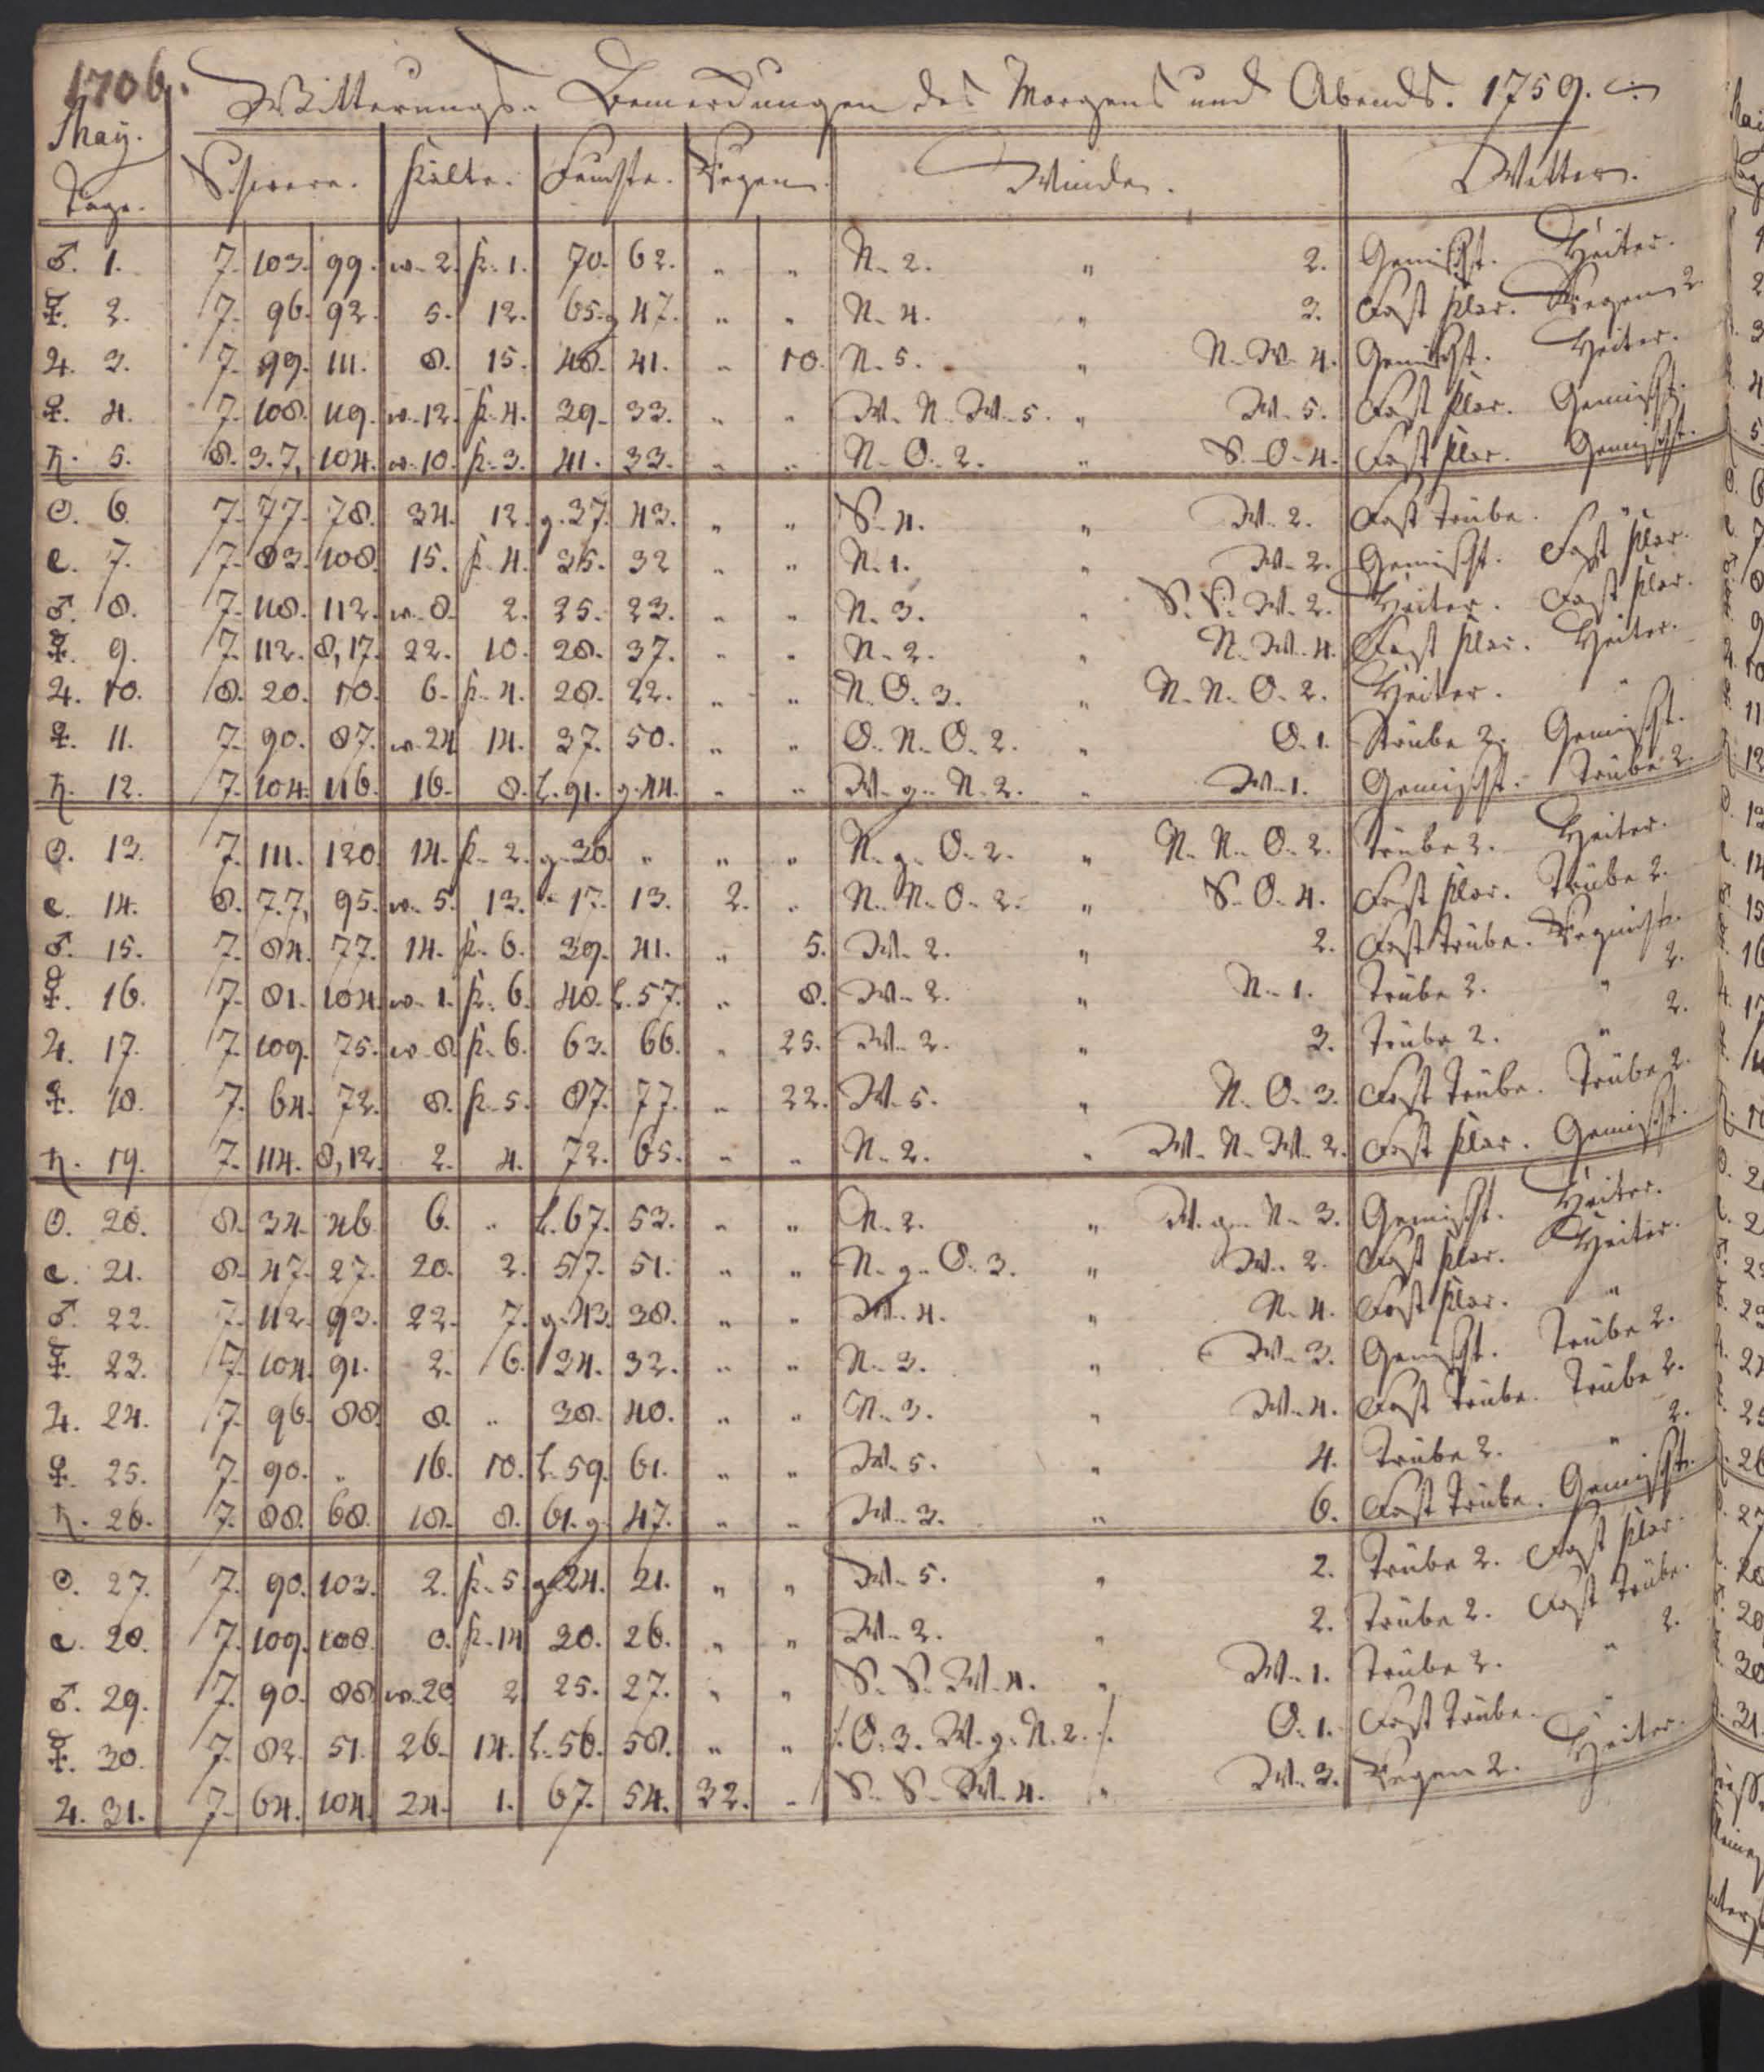 1706.
May.
Witterungs- Bemerckungen des Morgens und Abends. 1759.
Tage. Schwere. Kälte. Feuchte. Regen. Winde. Wetter.
♂. 1. 7. 103. 99. w. 2. k. 1. 70. 62. " " N. 2. " 2. Gemischt. Heiter.
☿. 2. 7. 96. 92. 5. 12. 65. g 47. " " N. 4. " 3. Fast klar. Regen 2.
♃. 3. 7. 99. 111. 8. 15. 48. 41. " 10. N. 5. " N. W. 4. Gemischt. Heiter.
♀. 4. 7. 108. 119. w. 12. k. 4. 39. 33. " " W. N. W. 5. " W. 5. Fast klar. Gemischt.
♄. 5. 8. 3. 7, 104. w. 10. k. 3. 41. 33. " " N. O. 2. " S. O. 4. Fast klar. Gemischt.
☉. 6. 7. 77. 78. 34. 12. g. 37. 43. " " S. 4. " W. 2. Fast trübe. "
☾. 7. 7. 83. 108. 15. k. 4. 35. 32 " " N. 1. " W. 2. Gemischt. Fast klar.
♂. 8. 7. 118. 112. w. 8. 2. 25. 23. " " N. 3. " S. S. W. 2. Heiter. Fast klar.
☿. 9. 7. 112. 8, 17. 22. 10. 28. 37. " " N. 2. " N. W. 4. Fast klar. Heiter.
♃. 10. 8. 20. 10. 6. k. 4. 28. 22. " " N. O. 3. " N. N. O. 2. Heiter. "
♀. 11. 7. 90. 87. w. 24 14. 37. 50. " " O. N. O. 2. " O. 1. Trübe 2. Gemischt.
♄. 12. 7. 104. 116. 16. 8. L. 91. g. 44. " " W. g. N. 2. " W. 1. Gemischt. Trübe 2.
☉. 13. 7. 111. 120. 14. k. 2. g. 30. " " " N. g. O. 2. " N. N. O. 2. Trübe 2. Heiter.
☾. 14. 8. 7. 7, 95. w. 5. 13. 17. 13. 2. " N. N. O. 2. " S. O. 4. Fast klar. Trübe 2.
♂. 15. 7. 84. 77. 14. k. 6. 39. 41. " 5. W. 2. " 2. Fast trübe.
☿. 16. 7. 81. 104. w. 1. k. 6. 48. L. 57. " 8. W. 2. " N. 1. Trübe 2. " 2.
♃. 17. 7. 109. 75. w. 8 k. 6. 63. 66. " 25. W. 2. " 3. Trübe 2. " 2.
♀. 18. 7. 64. 72. 8. k. 5. 87. 77. " 22. W. 5. " N. O. 3. Fast trübe. Trübe 2.
♄. 19. 7. 114. 8, 12. 2. 4. 72. 65. " " N. 2. " W. N. W. 2. Fast klar. Gemischt.
☉. 20. 8. 34. 46. 6. " L. 67. 53. " " N. 2. " W. g. N. 3. Gemischt. Heiter.
☾. 21. 8. 47. 27. 20. 2. 57. 51. " " N. g. O. 3. " W. 2. Fast klar. Heiter.
♂. 22. 7. 112. 93. 22. 7. g. 43. 38. " " W. 4. " N. 4. Fast klar. "
☿. 23. 7. 104. 91. 2. 6. 34. 32. " " N. 3. " W. 3. Gemischt. Trübe 2.
♃. 24. 7. 96. 88. 8. " 38. 40. " " N. 3. " W. 4. Fast trübe. Trübe 2.
♀. 25. 7. 90. " 16. 10. L. 59. 61. " " W. 5. " 4. Trübe 2. " 2.
♄. 26. 7. 88. 68. 18. 8. 61. g. 47. " " W. 3. " 6. Fast trübe. Gemischt.
☉. 27. 7. 90. 103. 2. k. 5. g 24. 21. " " W. 5. " 2. Trübe 2. Fast klar.
☾. 28. 7. 109. 108. 0. k. 14 20. 26. " " W. 2. " 2. Trübe 2. Fast trübe.
♂. 29. 7. 90. 88 w. 20 2 25. 27. " " S. S. W. 4. " W. 1. Trübe 2. " 2.
☿. 30. 7. 82. 51. 26. 14. L. 56. 58. " " /: O. 3. W. g. N. 2. :/ O. 1. Fast trübe. "
♃. 31. 7. 64. 104. 24. 1. 67. 54. 32. " S. S. W. 4. " W. 3. Regen 2. Heiter.